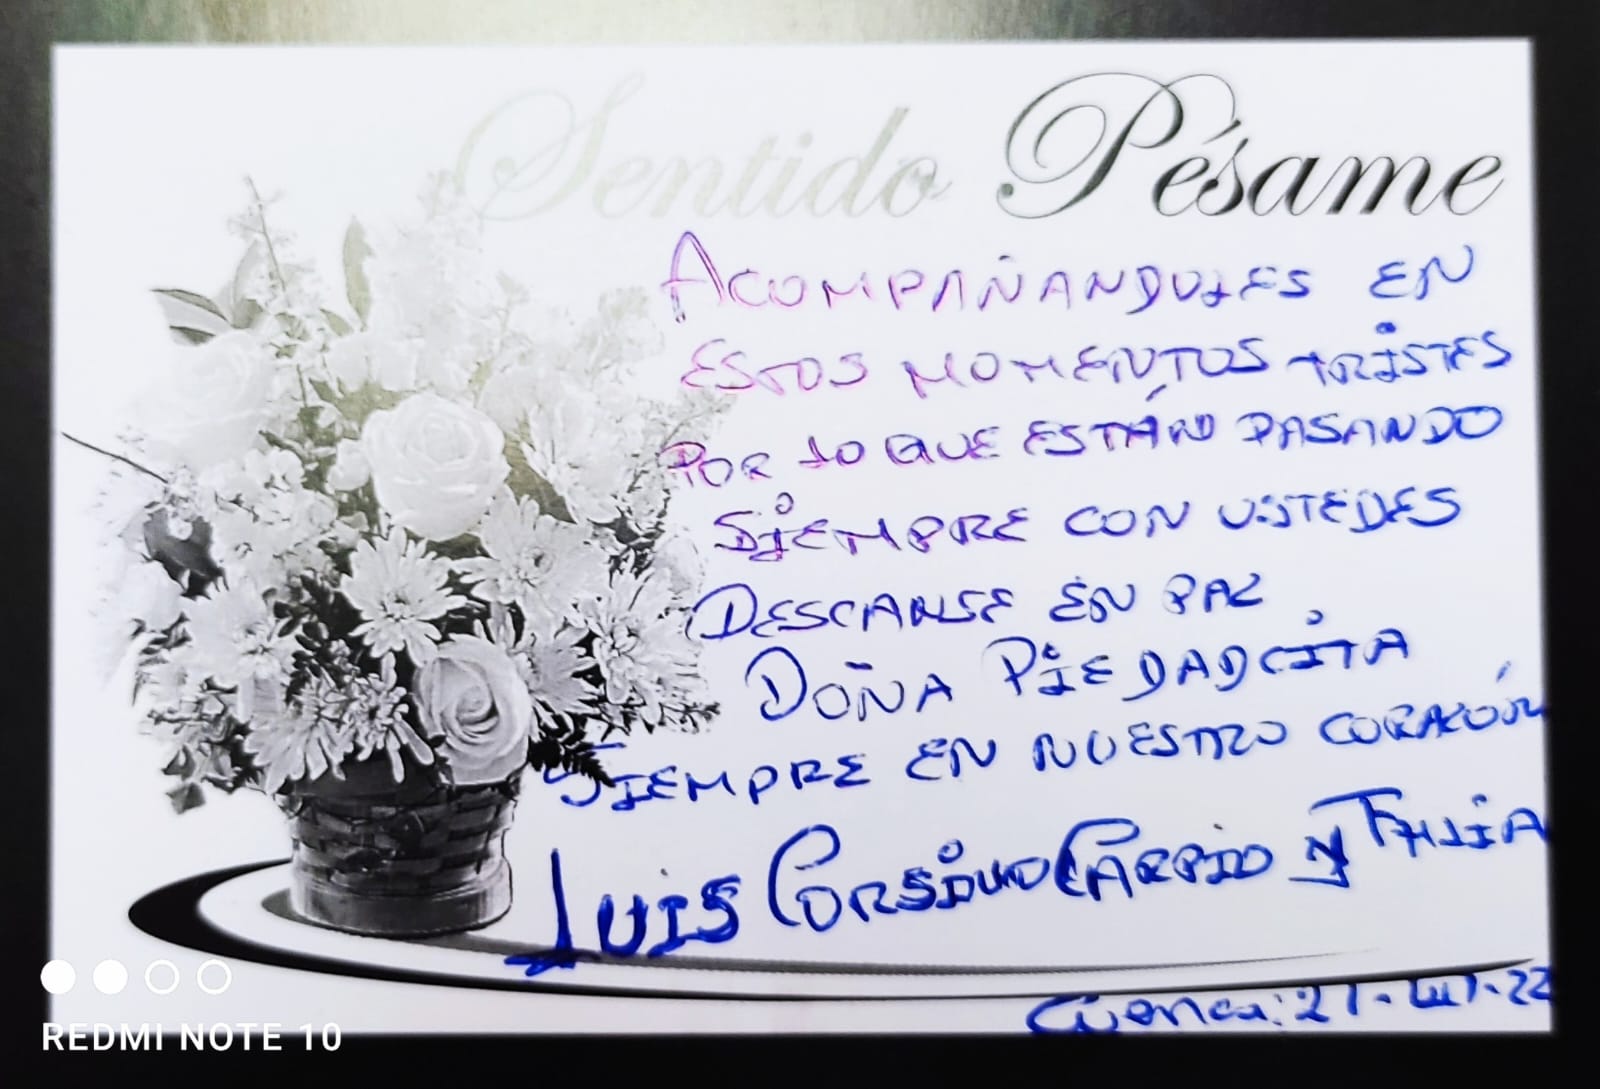 Sentido Pésame
ACOMPAÑANDOLES EN
ESTOS MOMENTOS TRISTES
POR LO QUE ESTÁN PASANDO
SIEMPRE CON USTEDES
DESCANSE EN PAZ
DOÑA PIEDADCITA
SIEMPRE EN NUESTRO CORAZÓN
LUIS CORSINO CARPIO Y FALIA
Cuenca: 21-
REDMI NOTE 10